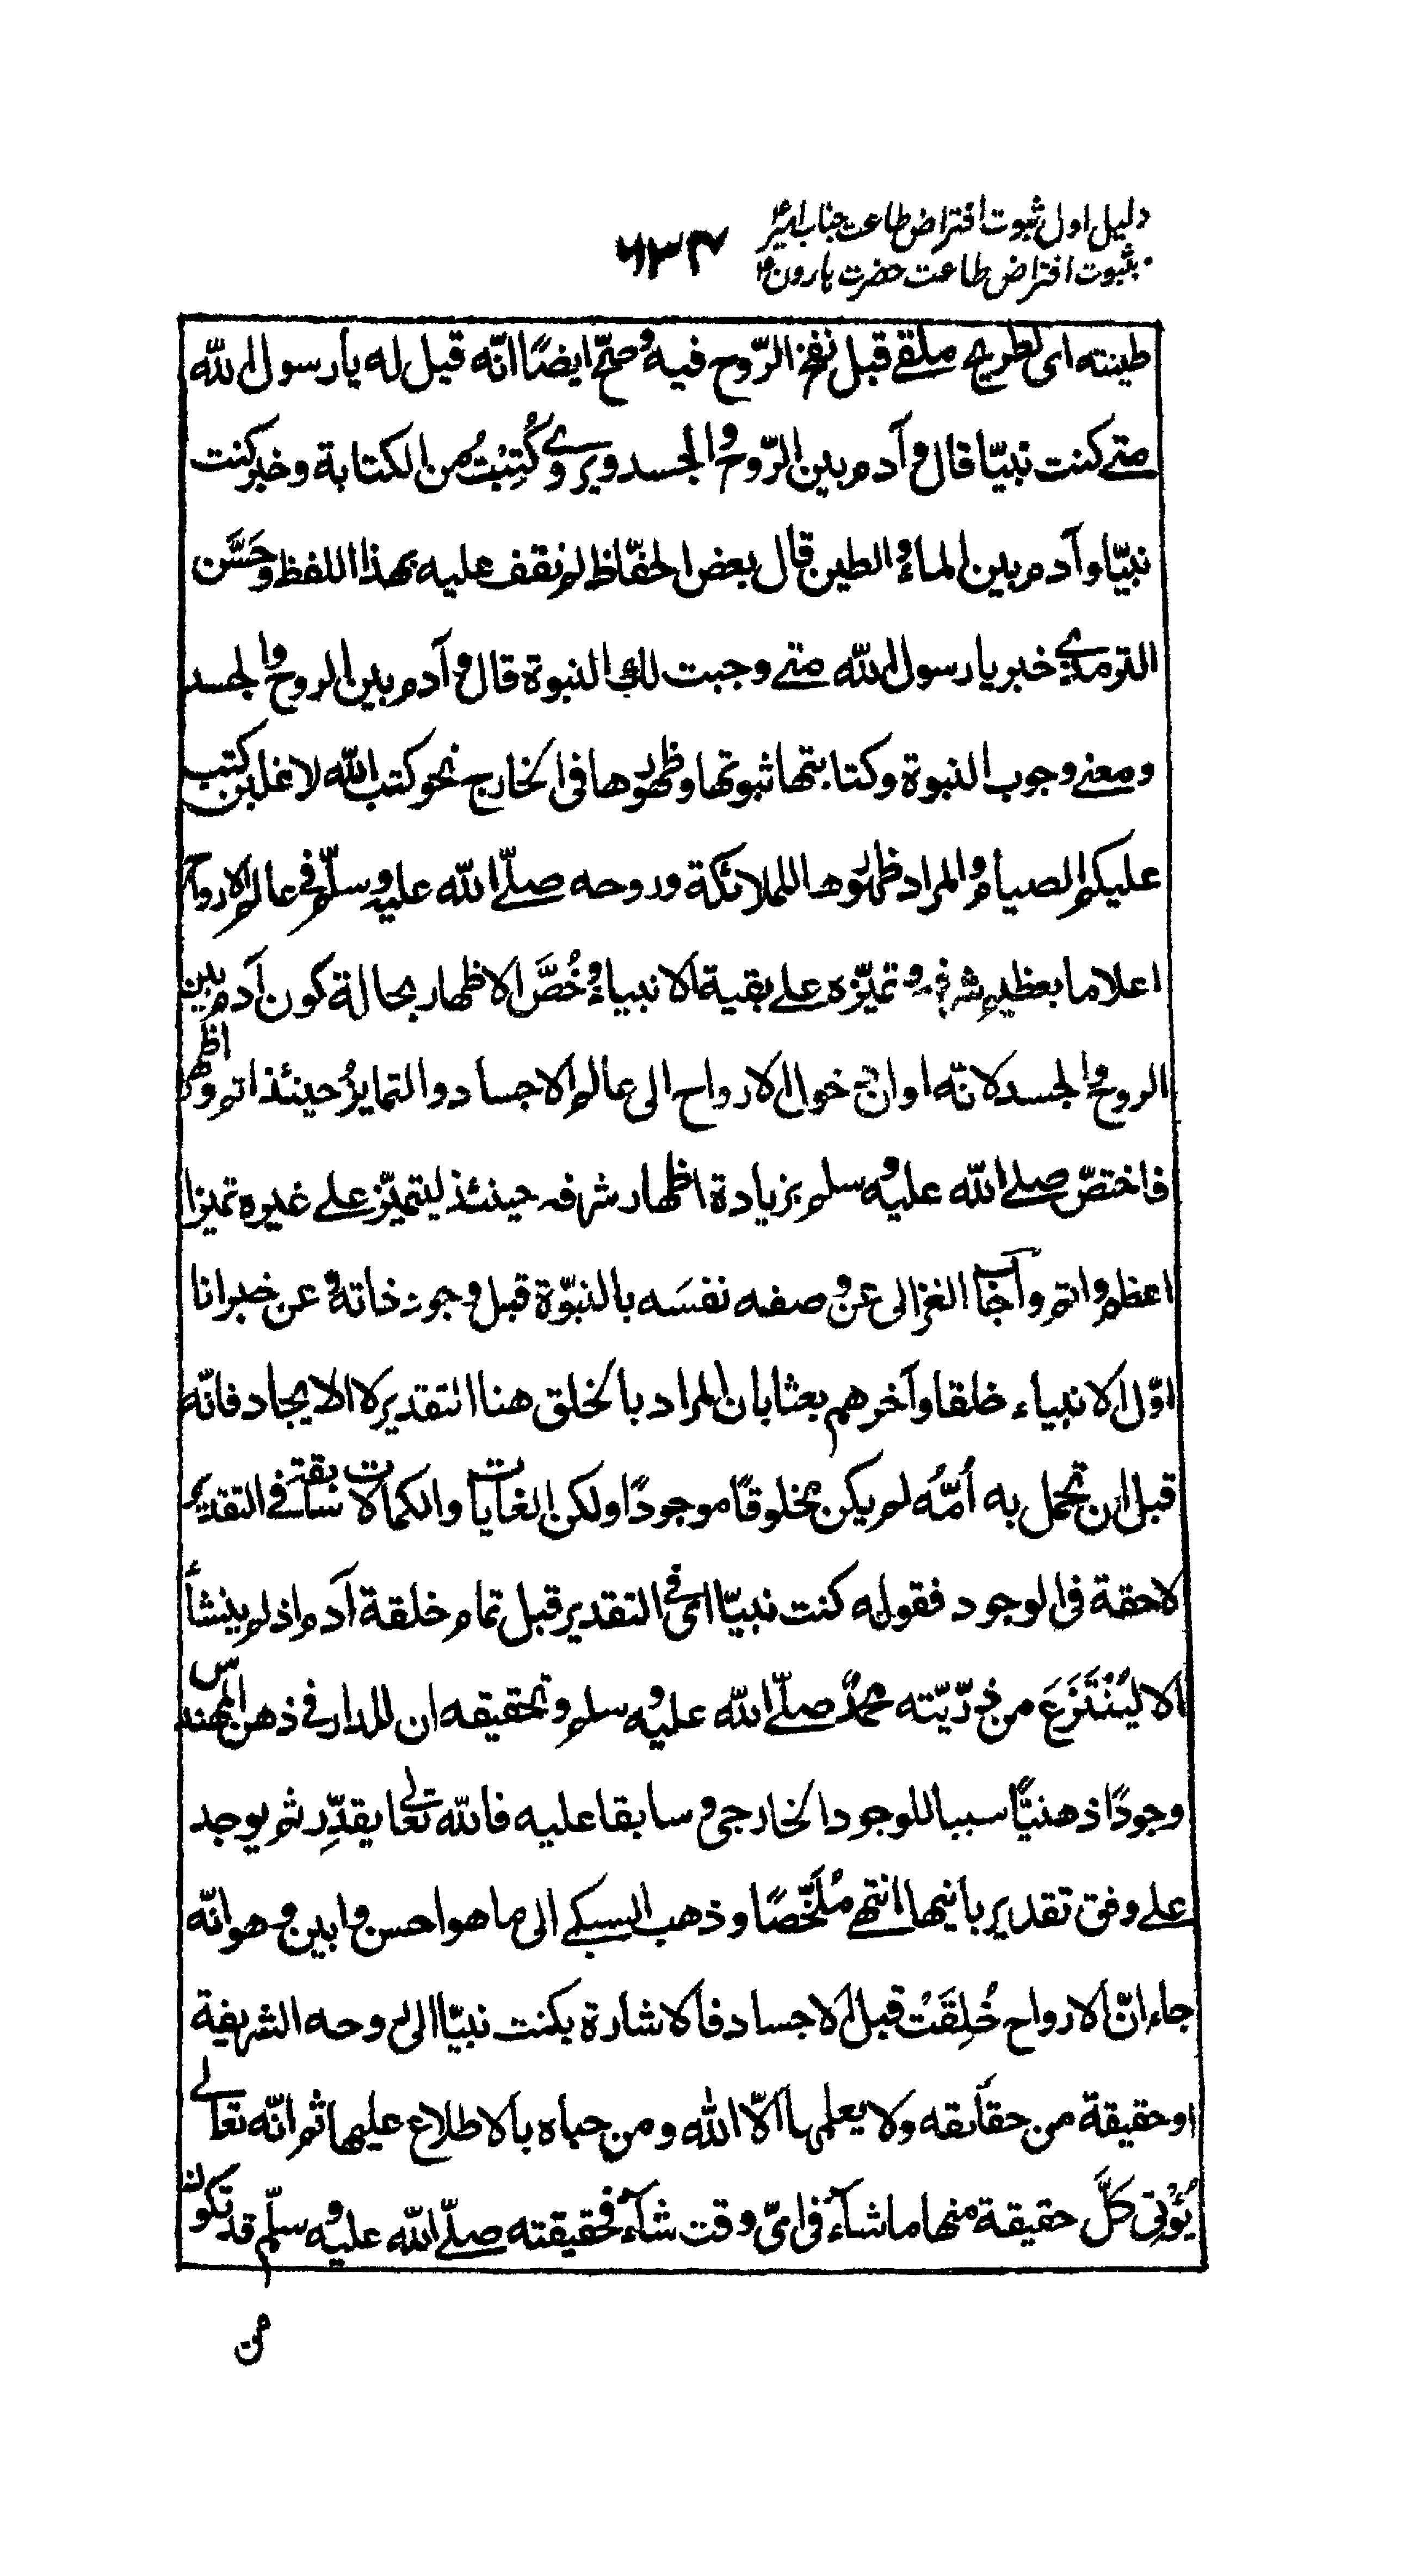 دلیل اول ثبوت افتراض طاعت جناب امیرؑ
بثبوت افتراض طاعت حضرت هارونؑ
۶۳۴
طينته اى لطريح ملقے قبل نفخ الرّوح فيه وصحّ ايضًا انّه قيل له يا رسول الله
متے كنت نبيّا قال وآدم بين الرّوح والجسد ويروے وكُتِبْتُ من الكتابة وخبر كنت
نبيّا وآدم بين الماء والطين قال بعض الحفّاظ لم نقف عليه بهذا اللفظ وحَسَّن
الترمذے خبر يا رسول الله متے وجبت لك النبوة قال وآدم بين الروح والجسد
ومعنے وجوب النبوة وكتابتها ثبوتها وظهورها فى الخارج نحو كتب الله لاغلبن كتب
عليكم الصيام والمراد ظهورها للملائكة وروحه صلّے الله عليه وسلّم فے عالم الارواح
اعلاما بعظيم شرفه وتميّزه علے بقية الانبياء وخُصَّ الاظهار بحالة كون آدم بين
الروح والجسد لانّه اوان دخول الارواح الى عالم الاجساد والتمايزُ حينئذ اتم واظهر
فاختصّ صلے الله عليه وسلم بزيادة اظهار شرفه حينئذ ليتميّز علے غيره تميزا
اعظم واتم واجاب الغزالى عن وصفه نفسَه بالنبوّة قبل وجود ذاته وعن خبر انا
اوّل الانبياء خلقا وآخرهم بعثا بان المراد بالخلق هنا التقدير لا الايجاد فانّه
قبل ان تحمل به اُمُّه لم يكن مخلوقًا موجودًا ولكن الغايات والكمالات سابقة فے التقدير
لاحقة فى الوجود فقوله كنت نبيّا اى فے التقدير قبل تمام خلقة آدم اذ لم ينشأ
الا ليُنْتَزَعَ من ذرّيّته محمّدٌ صلّے الله عليه وسلم وتحقيقه ان للدار فے ذهن المهندس
وجودًا ذهنيًّا سببا للوجود الخارجى وسابقا عليه فالله تعالے يقدِّر ثم يوجد
علے وفق تقدير بانيها انتهے مُلَخّصًا وذهب السبكے الى ما هو احسن وابين وهو انّه
جاء انّ الارواح خُلِقَتْ قبل الاجساد فالاشارة بكنت نبيّا الى روحه الشريفة
او حقيقة من حقائقه ولا يعلمها الّا الله ومن حباه بالاطلاع عليها ثم انّه تعالے
يُؤتى كلَّ حقيقة منها ما شآء فى اىّ وقت شآء فحقيقته صلّے الله عليه وسلّم قد تكون
من